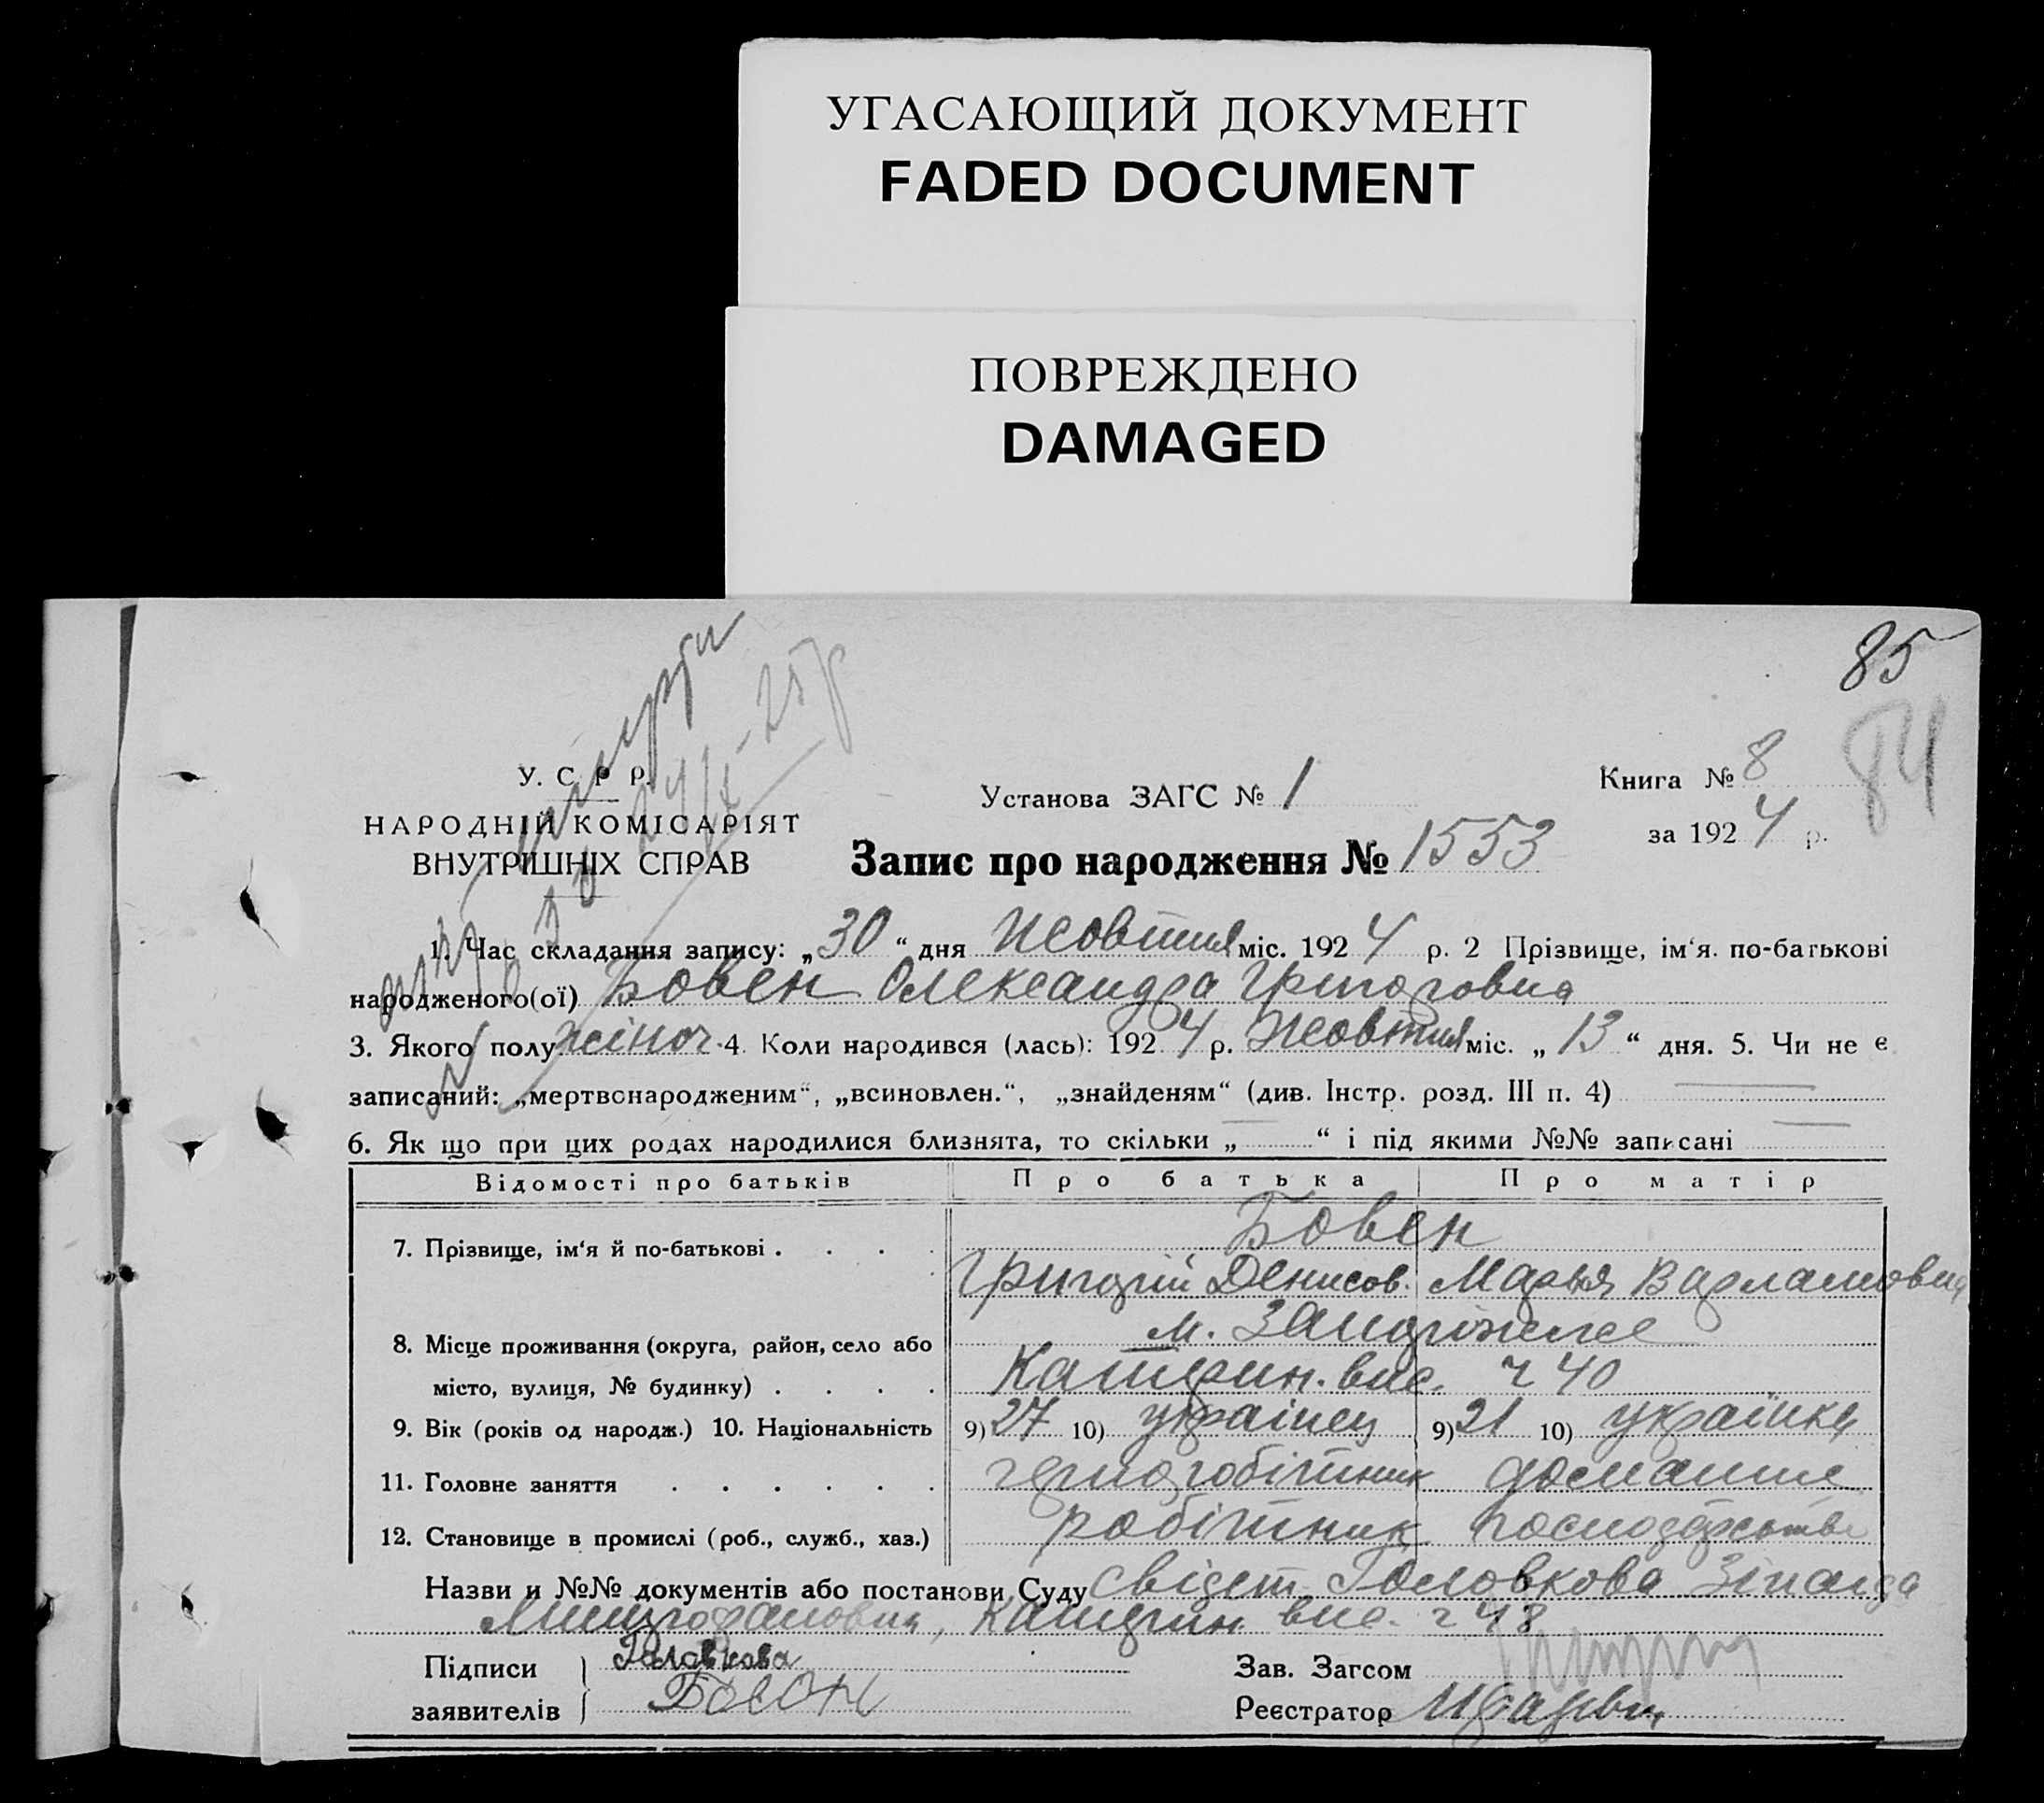 УГАСАЮЩИЙ ДОКУМЕНТ
FADED DOCUMENT
ПОВРЕЖДЕНО
DAMAGED
85
84
У. С. Р. Р.
НАРОДНІЙ КОМІСАРІЯТ
ВНУТРІШНІХ СПРАВ
Установа ЗАГС № 1
Книга № 8
за 1924 р.
Запис про народження № 1553
1. Час складання запису: „30“ дня Жовтня міс. 1924 р. 2 Прізвище, ім‘я. по-батькові
народженого(ої) Бовен Олександра Григоровна
3. Якого полу жіноч. 4. Коли народився (лась): 1924 р. Жовтня міс. „13“ дня. 5. Чи не є
записаний: „мертвонародженим“, „всиновлен.“, „знайденям“ (див. Інстр. розд. III п. 4)
6. Як що при цих родах народилися близнята, то скільки „ “ і під якими №№ записані
Відомості про батьків Про батька Про матір
Бовен
7. Прізвище, ім‘я й по-батькові . . . .
Григорій Денисов. Марья Варламовна
м. Запоріжжє
8. Місце проживання (округа, район, село або
місто, вулиця, № будинку) . . . . Катерин. вис. ч 40
9. Вік (років од народж.) 10. Національність 9) 27 10) українец 9) 21 10) українка
11. Головне заняття . . . . . . чорноробітник домашнє
12. Становище в промислі (роб., служб., хаз.) робітник господарство
Назви и №№ документів або постанови Суду Свідет. Головкова Зінаіда
Митрофановна, Катерин вис. ч 48
Підписи заявителів Головкова
Бовен
Зав. Загсом
Реєстратор